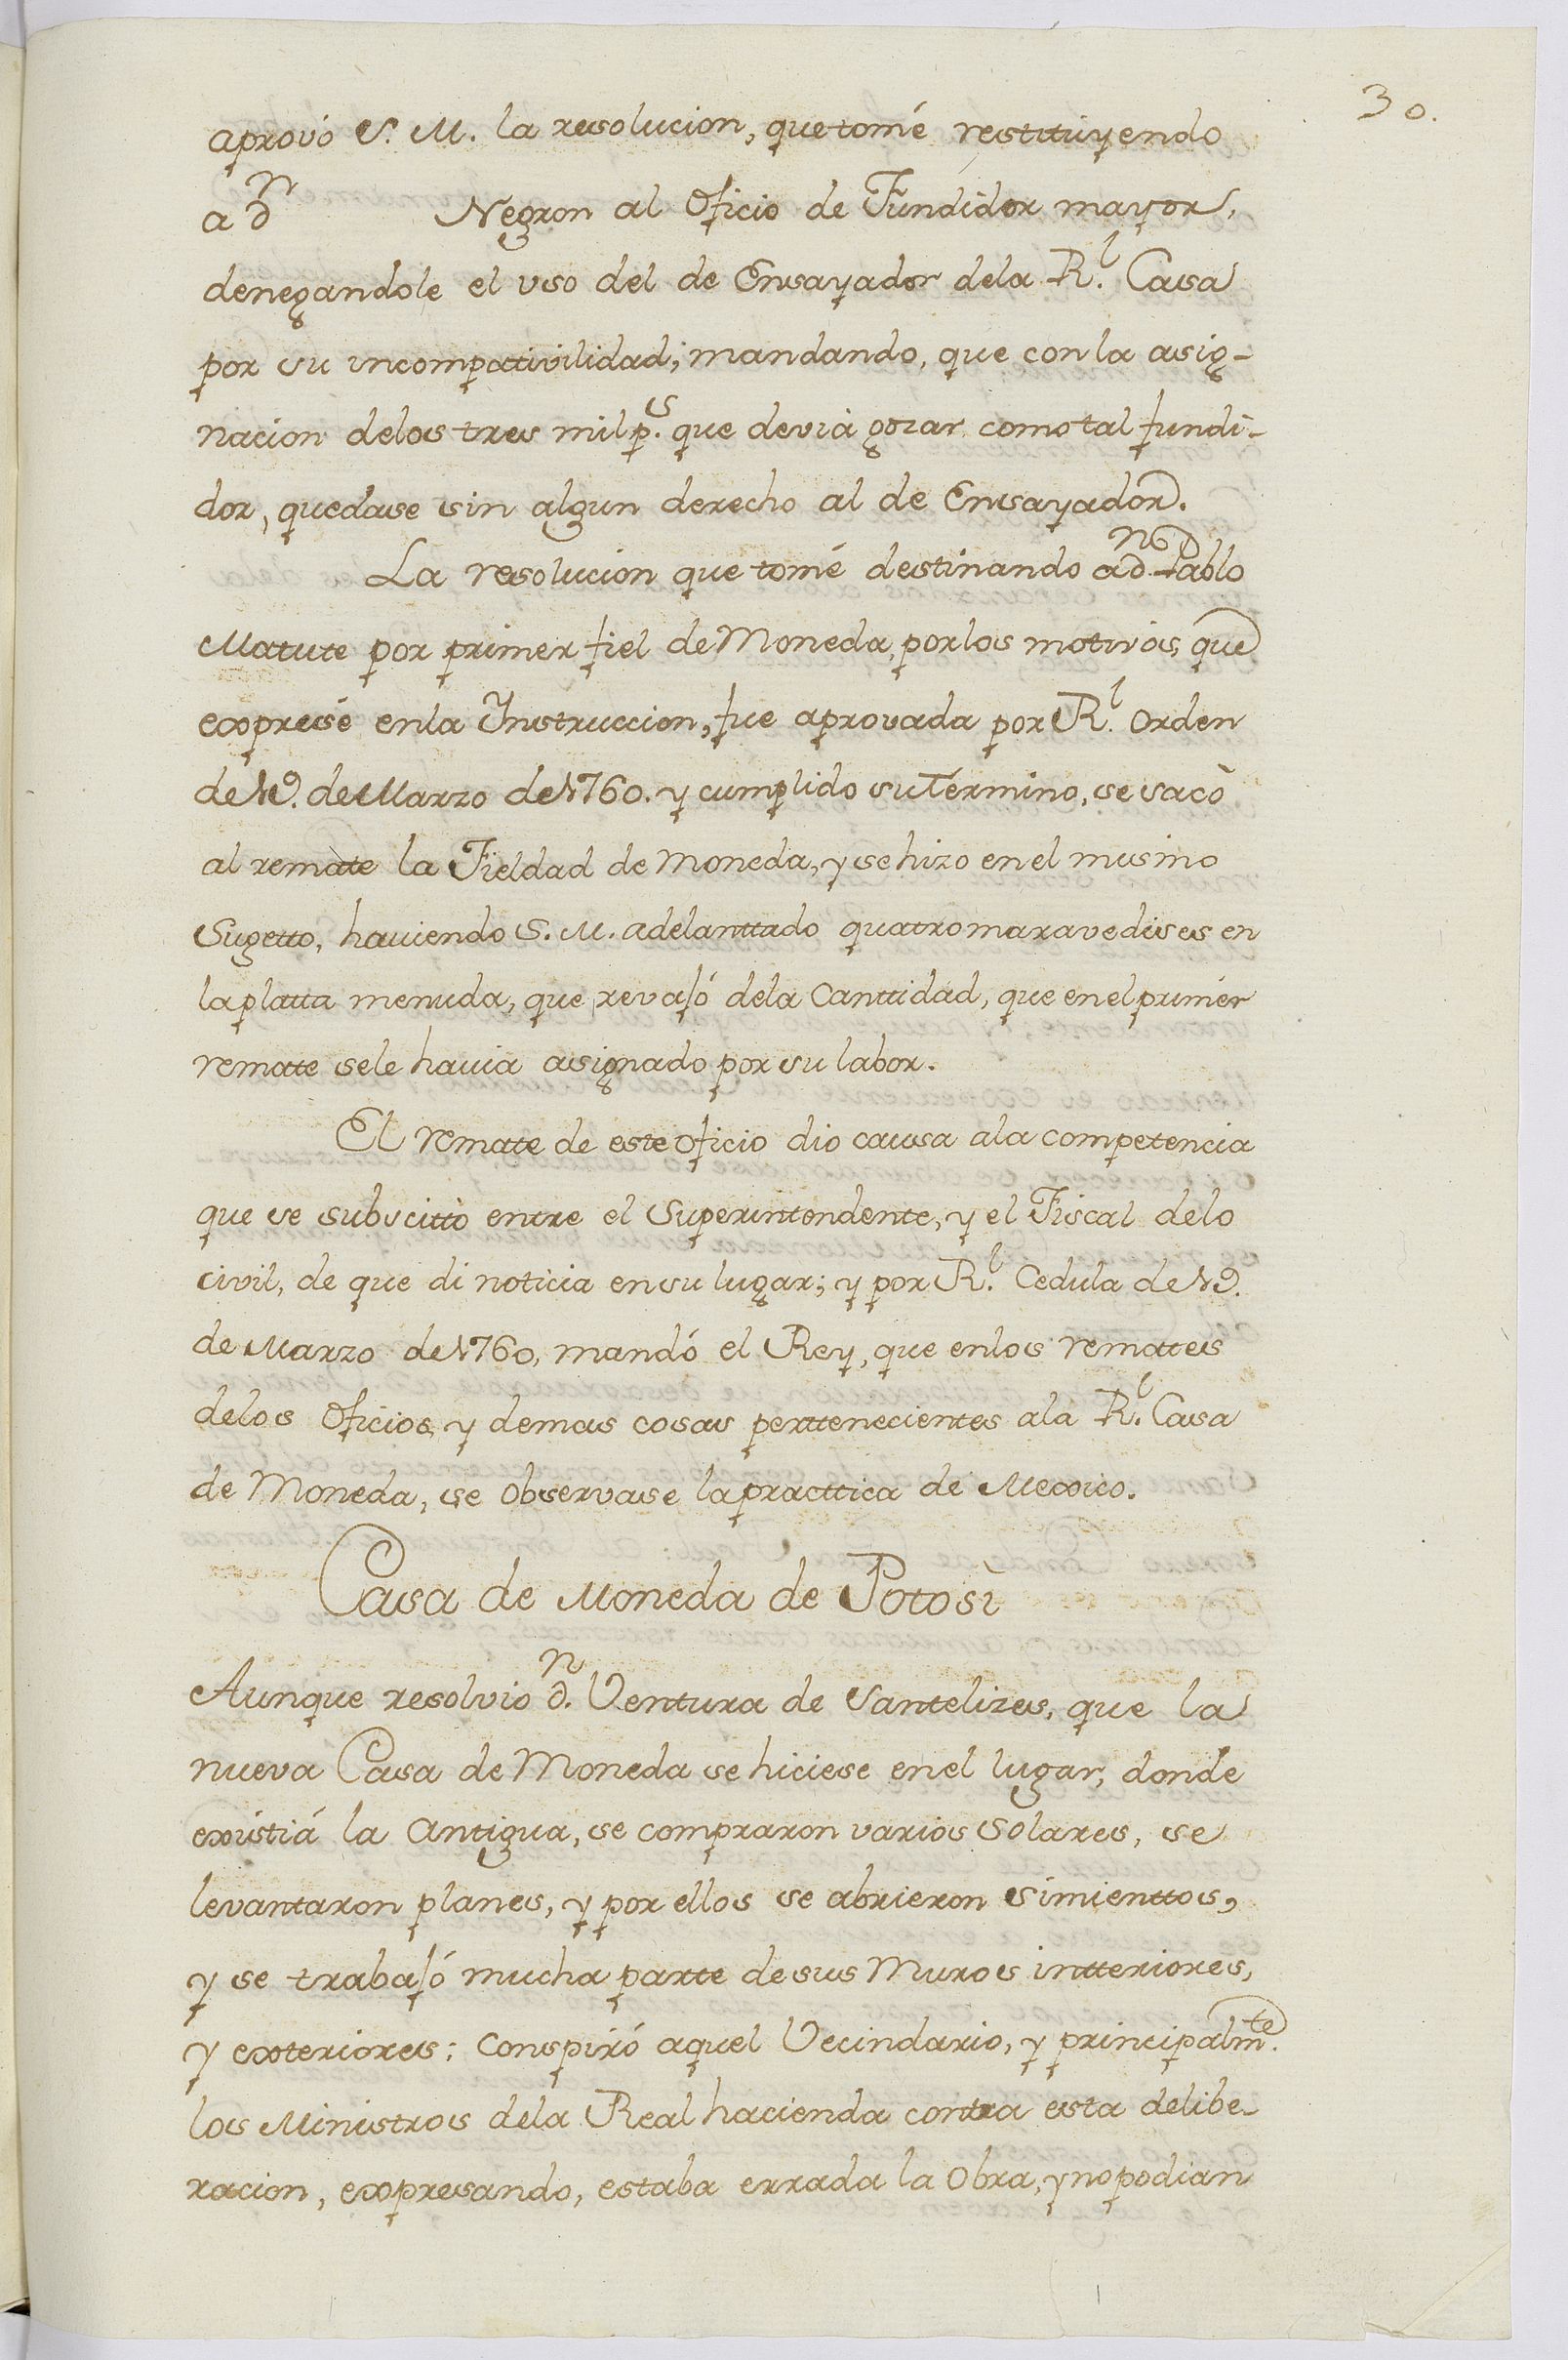 30.
aprovó S. M. la resolucion, que tomé restituyendo
a dn Negron al Oficio de Fundidor mayor,
denegandole el uso del de Ensayador dela Rl. Casa
por su incompativilidad; mandando, que con la asig-
nacion delos tres mil ps. que deviá gozar como tal fundi-
dor, quedase sin algun derecho al de Ensayador.
La resolucion que tomé destinando a dn. Pablo
Matute por primer fiel de Moneda, por los motivos, que
expresé enla Ynstruccion, fue aprovada por Rl. Orden
de 12. de Marzo de 1760. y cumplido su Término, se sacò
al remàte la Fieldad de Moneda, y se hizo en el mismo
Sugetto, haviendo S. M. adelanttado quatro maravedises en
la platta menuda, que revajó dela Canttidad, que en el primér
remate sele havia asignado por su labor.
El remate de este Oficio dio causa ala competencia
que se subscittò entre el Superintendente, y el Fiscal delo
civil, de que di noticia en su lugar; y por Rl. Cedula de 12.
de Marzo de 1760, mandó el Rey, que enlos remates
delos Oficios, y demas cosas perttenecientes ala Rl. Casa
de Moneda, se observase la practtica de Mexico.
Casa de Moneda de Potosì
Aunque resolvio dn. Ventura de Santelizes, que la
nueva Casa de Moneda se hiciese en el lugar, donde
existiá la Antigua, se compraron varios Solares, se
levantaron planes, y por ellos se abrieron simienttos,
y se trabajó mucha parte de sus Muros intteriores,
y exteriores; Conspiró aquel Vecindario, y principalmte.
los Ministros dela Real hacienda contra esta delibe-
racion, expresando, estaba errada la Obra, y no podian